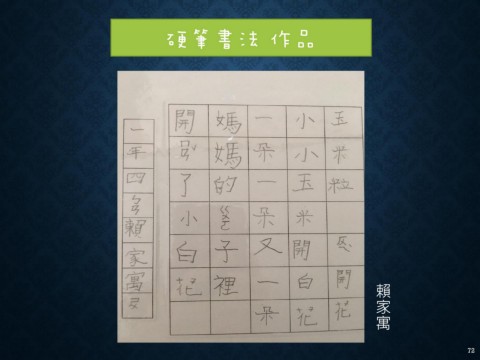 硬筆書法 作品
玉米粒 開花
小小玉米開白花
一朵一朵又一朵
媽媽的子裡
開了小白花
一年四賴家寓
賴家寓
73